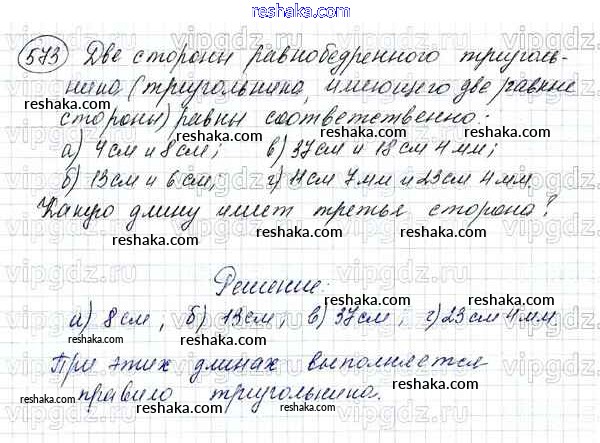 reshaka.com
573 Две стороны равнобедренного треуголь-
ника (треугольника, имеющего две равные
стороны) равны соответственно:
а) 4см и 8см; в) 37см и 18см 4мм;
б) 13см и 6см; г) 11см 7мм и 23см 4мм.
Какую длину имеет третья сторона?
Решение:
а) 8см; б) 13см; в) 37см; г) 23см 4мм.
При этих длинах выполняется
правило треугольника.
reshaka.com
vipgdz.ru